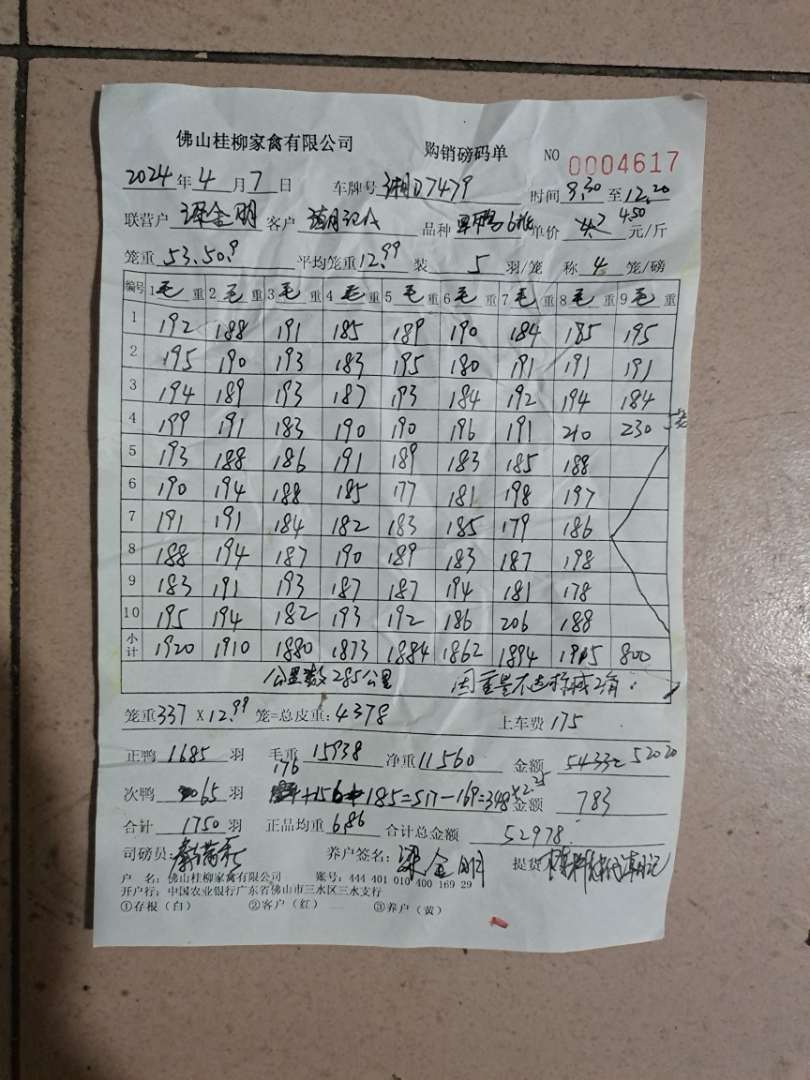 佛山桂柳家禽有限公司 购销磅码单 NO 0004617
2024年4月7日 车牌号 湘D7479 时间 9:30 至 12:20
联营户 梁金明 客户 品种 单价 4.50 元/斤
笼重 53.50.9 平均笼重 12.99 装 5 羽/笼 称 4 笼/磅
编号 1毛重 2毛重 3毛重 4毛重 5毛重 6毛重 7毛重 8毛重 9毛重
1 192 188 191 185 189 190 184 185 195
2 195 190 193 183 195 180 191 191 191
3 194 189 193 187 193 184 192 194 184
4 199 191 183 190 190 196 191 210 230 5笼
5 193 188 186 191 189 183 185 188
6 190 194 188 185 177 181 198 197
7 191 191 184 182 183 185 179 186
8 188 194 187 190 189 183 187 198
9 183 191 193 187 187 194 181 178
10 195 194 182 193 192 186 206 188
小计 1920 1910 1880 1873 1884 1862 1894 1915 800
公里数285公里 因重量不达标减2角.
笼重337×12.99笼=总皮重:4378 上车费175
正鸭 1685 羽 毛重 15938 净重 11560 金额 54332 52020
次鸭 65 羽 176+156+185=517-169=348×2.25 金额 783
合计 1750 羽 正品均重 6.86 合计总金额 52978.
司磅员: 养户签名: 梁金明 提货
户 名:佛山桂柳家禽有限公司 账号:444 401 010 400 169 29
开户行:中国农业银行广东省佛山市三水区三水支行
①存根(白) ②客户(红) ③养户(黄)